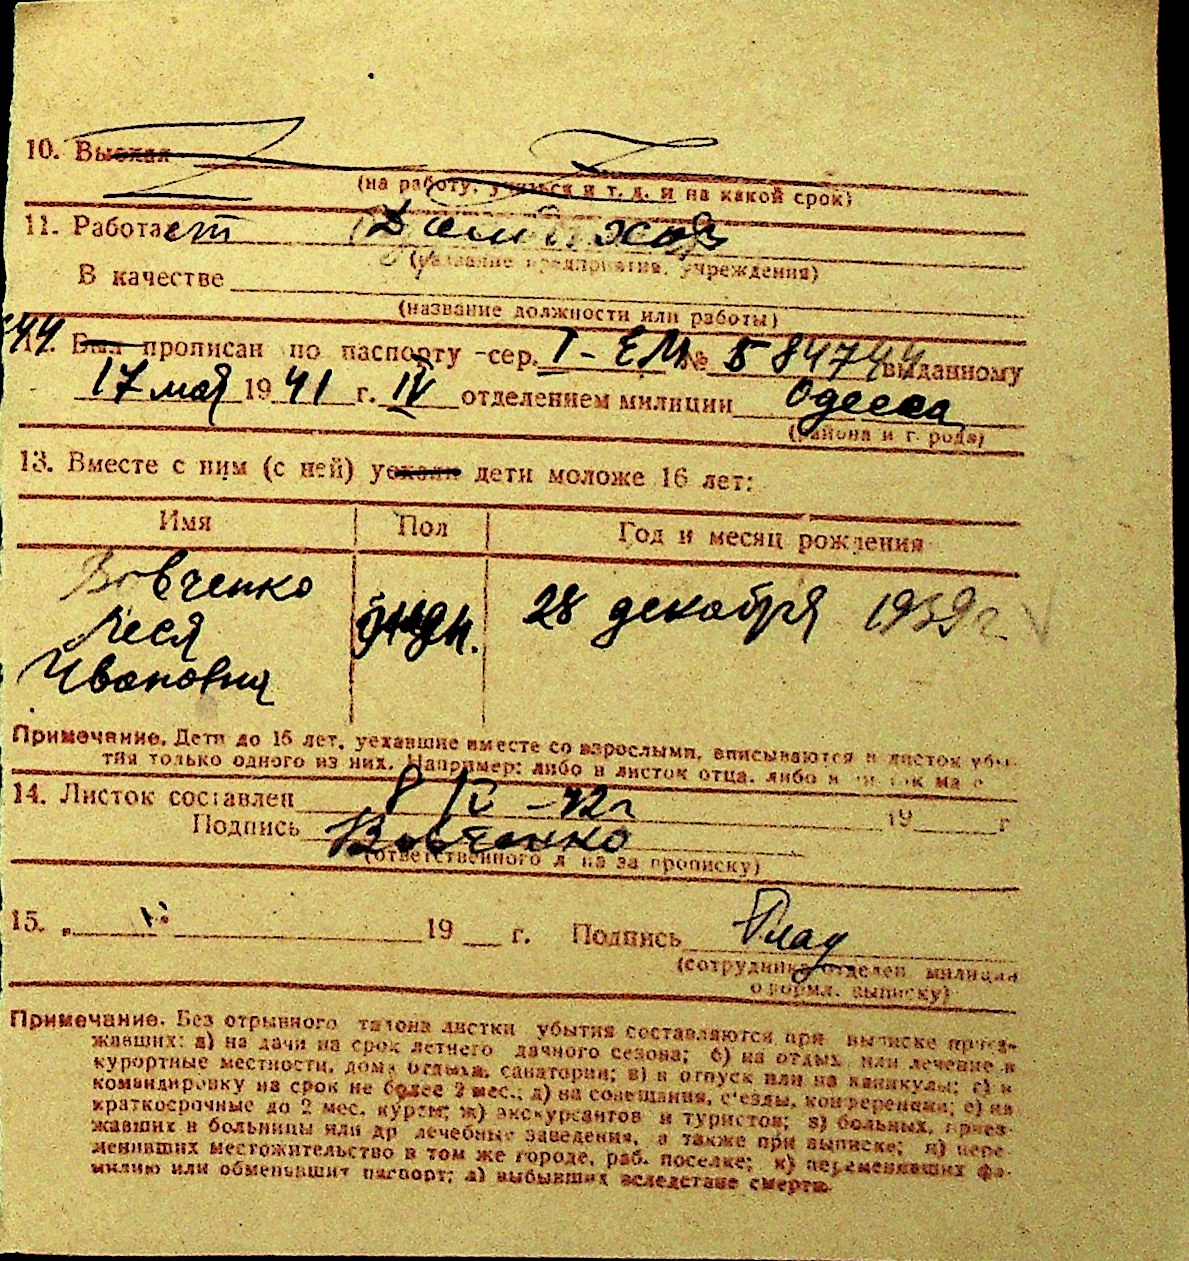 10. Выехал
(на работу, учиться и т. д. и на какой срок)
11. Работает
(название предприятия, учреждения)
В качестве
(название должности или работы)
12. Был прописан по паспорту -сер. I - ЕМ № 584744 выданному
17 мая 1941 г. IV отделением милиции Одесса
(района и города)
13. Вместе с ним (с ней) уехали дети моложе 16 лет:
Имя Пол Год и месяц рождения
Вовченко
Леся 28 декабря 1939 г.
Ивановна
Примечание. Дети до 16 лет, уехавшие вместе со взрослыми, вписываются в листок убы-
тия только одного из них. Например: либо в листок отца, либо в листок
14. Листок составлен 8/IV - 42 г 19 г
Подпись Вовченко
(ответственного лица за прописку)
15. „ 19 г. Подпись
(сотрудника отделен. милиции
оформл. выписку)
Примечание. Без отрывного талона листки убытия составляются при выписке приез-
жавших: а) на дачи на срок летнего дачного сезона; б) на отдых или лечение в
курортные местности, дома отдыха, санатории; в) в отпуск или на каникулы; г) в
командировку на срок не более 2 мес.; д) на совещания, с'езды, конференции; е) на
краткосрочные до 2 мес. курсы; ж) экскурсантов и туристов; з) больных, приез-
жавших в больницы или др лечебные заведения, а также при выписке; и) пере-
менивших местожительство в том же городе, раб. поселке; к) переменивших фа-
милию или обменявших паспорт; л) выбывших вследствие смерти.